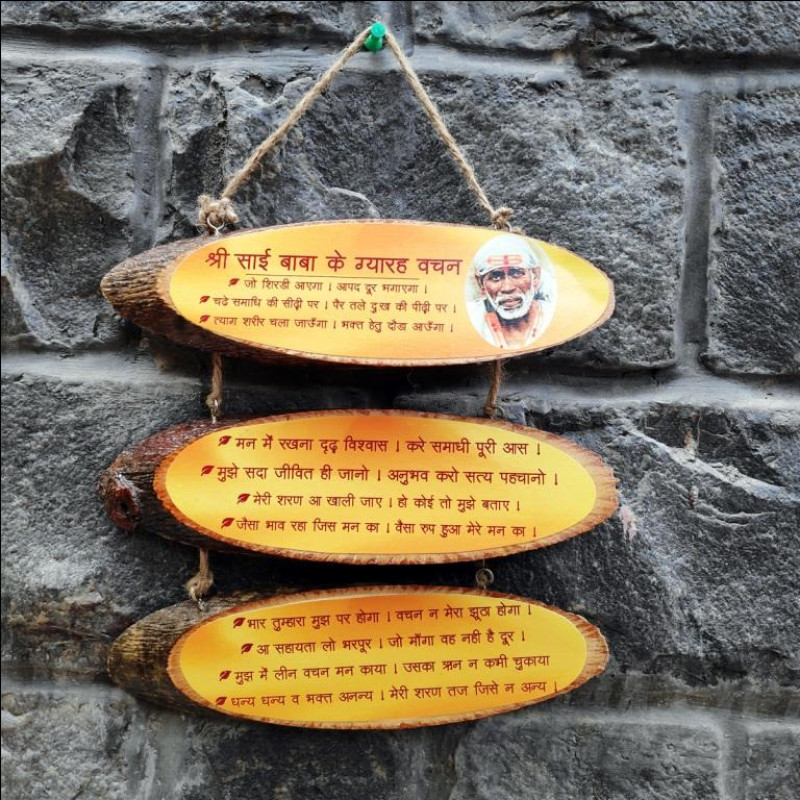 श्री साई बाबा के ग्यारह वचन
जो शिरडी आएगा । आपद दूर भगाएगा ।
चढे समाधि की सीढ़ी पर । पैर तले दुःख की पीढ़ी पर ।
त्याग शरीर चला जाऊँगा । भक्त हेतु दौडा आऊँगा ।
मन में रखना दृढ़ विश्वास । करे समाधी पूरी आस ।
मुझे सदा जीवित ही जानो । अनुभव करो सत्य पहचानो ।
मेरी शरण आ खाली जाए । हो कोई तो मुझे बताए ।
जैसा भाव रहा जिस मन का । वैसा रुप हुआ मेरे मन का ।
भार तुम्हारा मुझ पर होगा । वचन न मेरा झूठा होगा ।
आ सहायता लो भरपूर । जो माँगा वह नही है दूर ।
मुझ में लीन वचन मन काया । उसका ऋन न कभी चुकाया
धन्य धन्य व भक्त अनन्य । मेरी शरण तज जिसे न अन्य ।